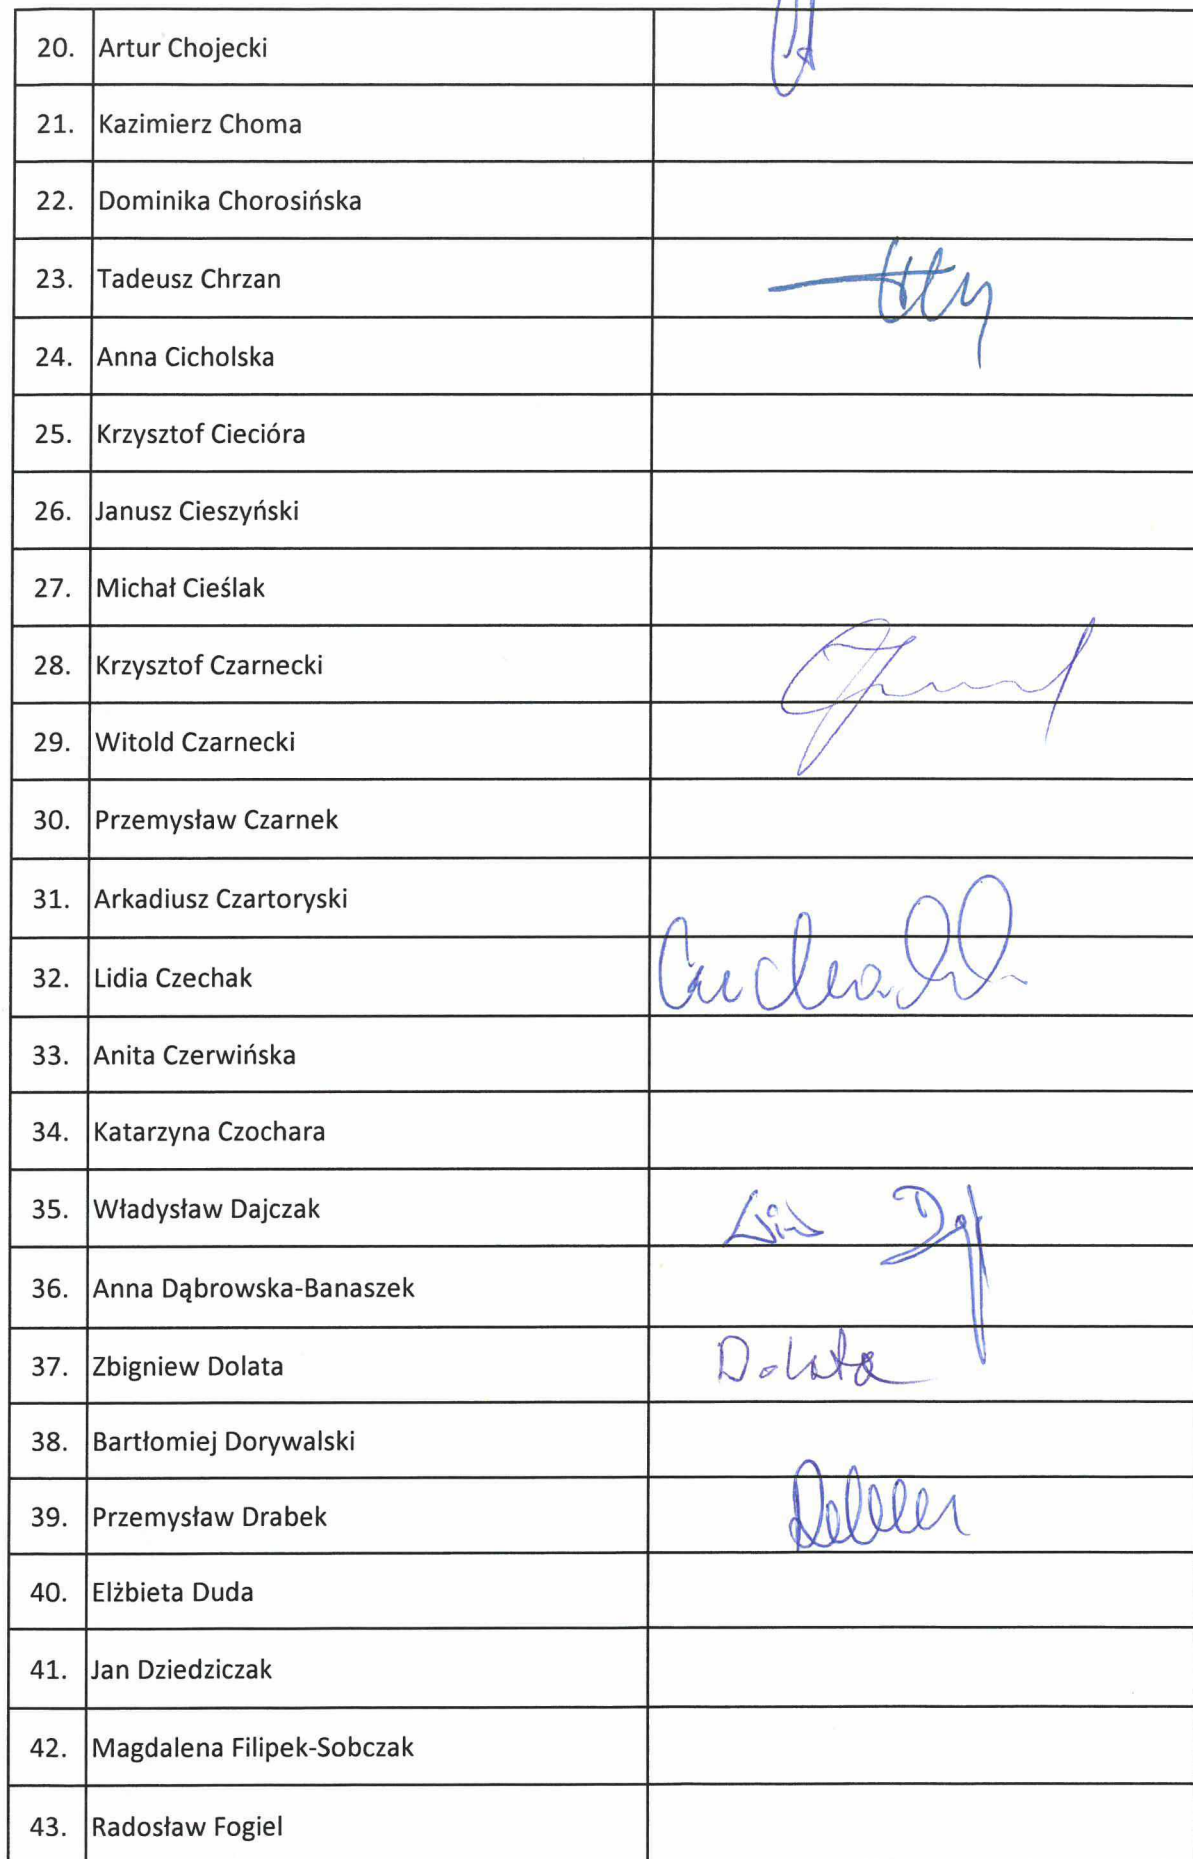 20. Artur Chojecki
21. Kazimierz Choma
22. Dominika Chorosińska
23. Tadeusz Chrzan
24. Anna Cicholska
25. Krzysztof Ciecióra
26. Janusz Cieszyński
27. Michał Cieślak
28. Krzysztof Czarnecki
29. Witold Czarnecki
30. Przemysław Czarnek
31. Arkadiusz Czartoryski
32. Lidia Czechak
33. Anita Czerwińska
34. Katarzyna Czochara
35. Władysław Dajczak
36. Anna Dąbrowska-Banaszek
37. Zbigniew Dolata Dolata
38. Bartłomiej Dorywalski
39. Przemysław Drabek
40. Elżbieta Duda
41. Jan Dziedziczak
42. Magdalena Filipek-Sobczak
43. Radosław Fogiel